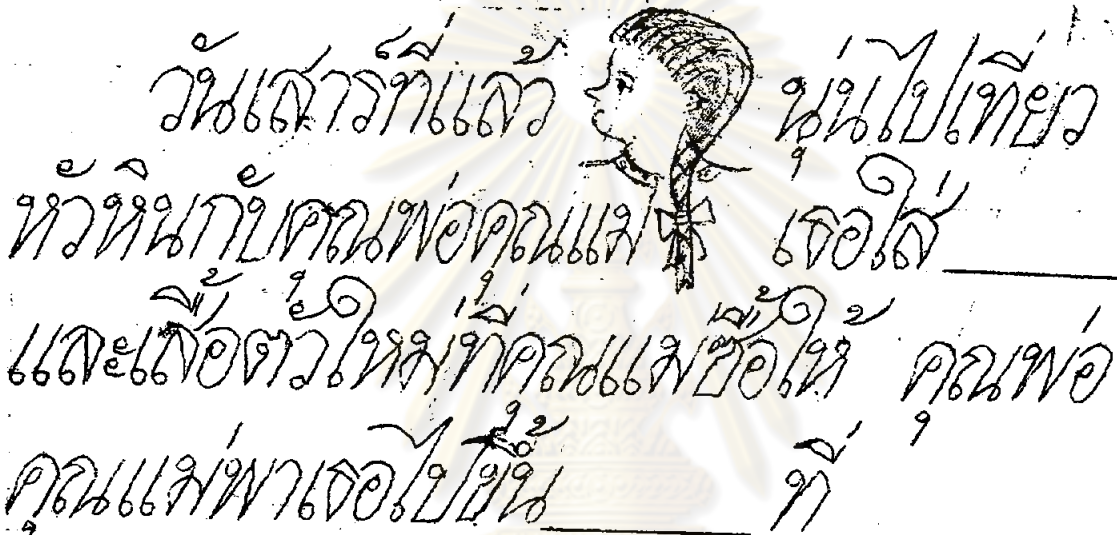 วันเสาร์ที่แล้ว นุ่นไปเที่ยว
หัวหินกับคุณพ่อคุณแม่ เธอใส่_____
และเสื้อตัวใหม่ที่คุณแม่ซื้อให้ คุณพ่อ
คุณแม่พาเธอไปขึ้น_____ ที่